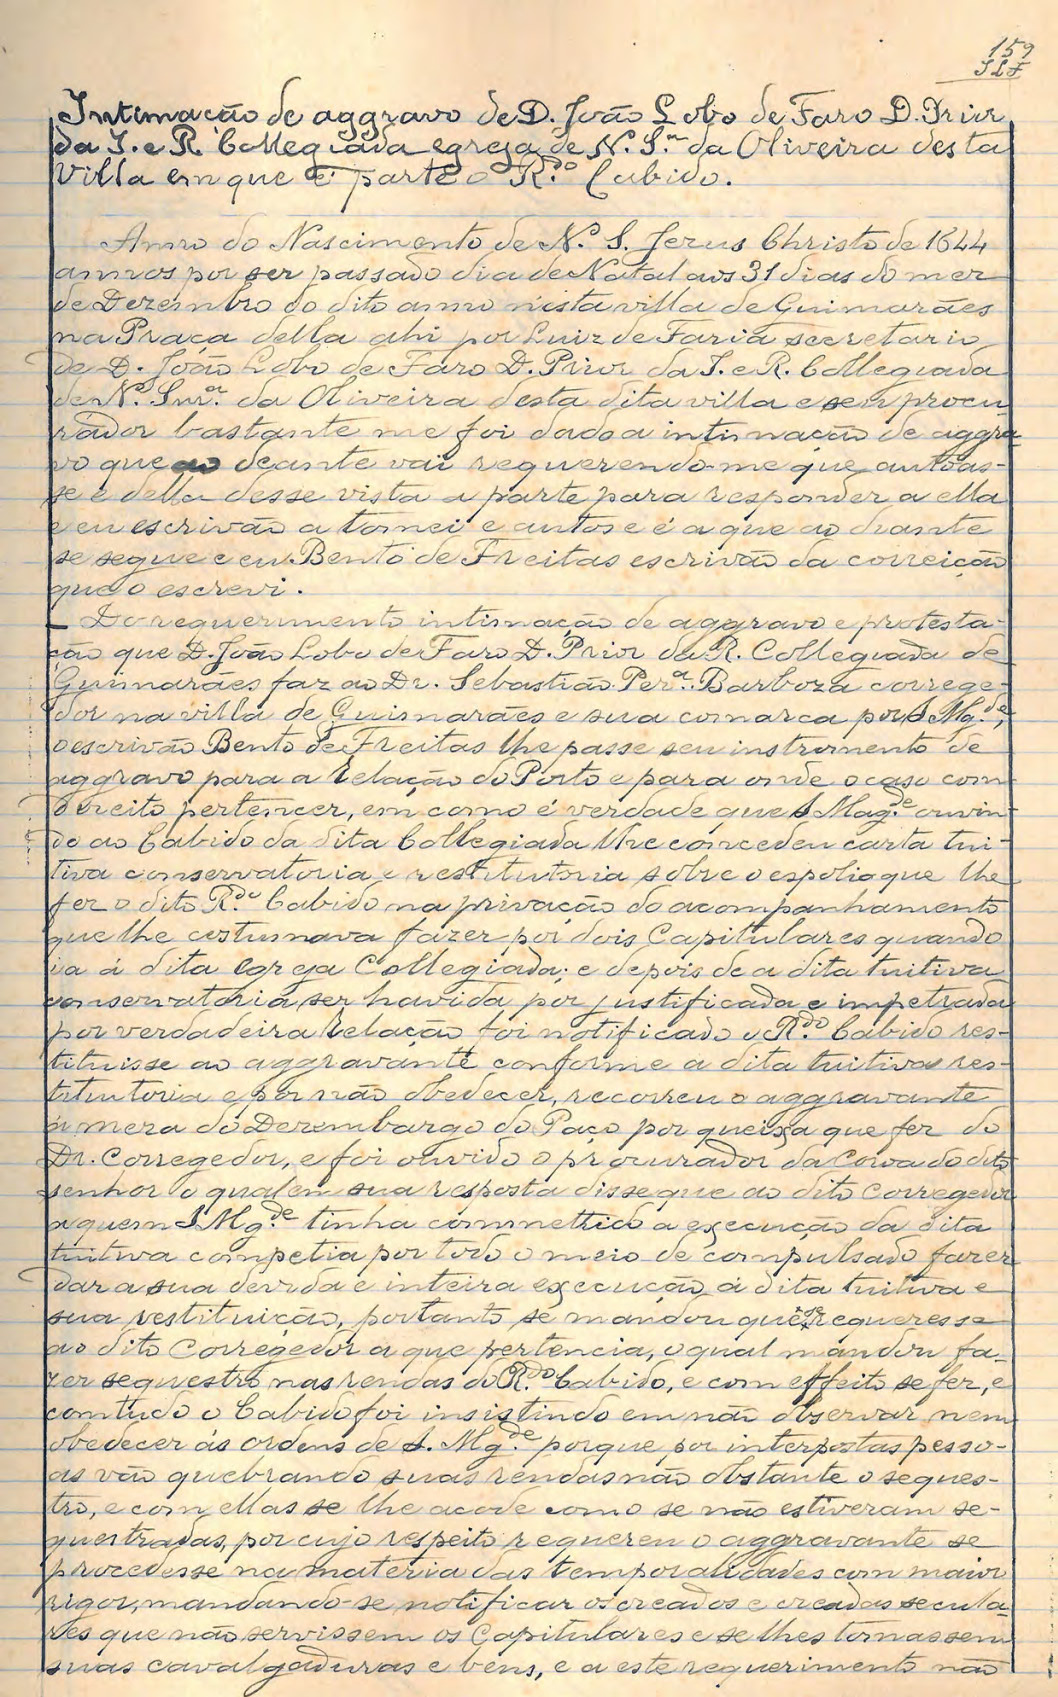 159
Intimação de aggravo de D. João Lobo de Faro D. Prior
da I. e R. Collegiada egreja de N.ª S.ra da Oliveira desta
Villa em que é parte o R.do Cabido.
Anno do Nascimento de N.º S. Jezus Christo de 1644
annos por ser passado dia de Natal aos 31 dias do mez
de Dezembro do dito anno nésta villa de Guimarães
na Praça della ahi por Luiz de Faria secretario
de D. João Lobo de Faro D. Prior da I. e R. Collegiada
de N.ª Snr.a da Oliveira desta dita villa e seu procu-
rador bastante me foi dado a intimação de aggra-
vo que ao deante vai requerendo-me que autoas-
se e della desse vista a parte para responder a ella
e eu escrivão a tomei e autoei e é a que ao diante
se segue e eu Bento de Freitas escrivão da correição
que o escrevi.
Do requerimento intimação de aggravo e protesta-
ção que D. João Lobo de Faro D. Prior da R. Collegiada de
Guimarães faz ao Dr. Sebastião Per.a Barboza correge-
dor na villa de Guimarães e sua comarca por S. Mg.de,
o escrivão Bento de Freitas lhe passe seu instromento de
aggravo para a Relação do Porto e para onde o caso com
direito pertencer, em como é verdade que S. Mag.de ouvin-
do ao Cabido da dita Collegiada lhe concedeu carta tui-
tiva conservatoria e restitutoria sobre o espolio que lhe
fez o dito R.do Cabido na privação do acompanhamento
que lhe costumava fazer por dois Capitulares quando
ia á dita egreja Collegiada; e depois de a dita tuitiva
conservatoria ser havida por justificada e impetrada
por verdadeira Relação foi notificado o R.do Cabido res-
tituisse ao aggravante conforme a dita tuitiva res-
titutoria e por não obedecer, recorreu o aggravante
á meza do Dezembargo do Paço por queixa que fez do
Dr. Corregedor, e foi ouvido o procurador da Coroa do dito
senhor o qual em sua resposta disse que ao dito corregedor
a quem S. Mg.de tinha commettido a execução da dita
tuitiva competia por todo o meio de compulsado fazer
dar a sua devida e inteira execução á dita tuitiva e
sua restituição, portanto se mandou que se requeresse
ao dito Corregedor a que pertencia, o qual mandou fa-
zer sequestro nas rendas do R.do Cabido, e com effeito se fez, e
comtudo o Cabido foi insistindo em não observar nem
obedecer ás ordens de S. Mg.de porque por interpostas pesso-
as vão quebrando suas rendas não obstante o seques-
tro, e com ellas se lhe acode como se não estiveram se-
questradas, por cujo respeito requereu o aggravante se
procedesse na materia das temporalidades com maior
rigor, mandando-se notificar os creados e creadas secula-
res que não servissem os Capitulares e se lhes tomassem
suas cavalgaduras e bens, e a este requerimento não